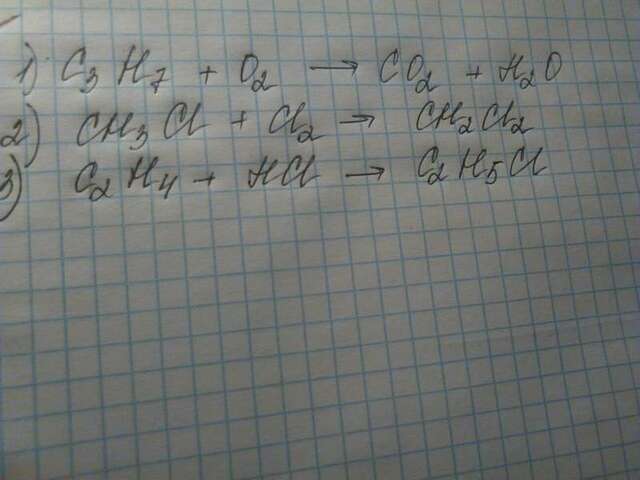 1) C₃H₇ + O₂ → CO₂ + H₂O
2) CH₃Cl + Cl₂ → CH₂Cl₂
3) C₂H₄ + HCl → C₂H₅Cl